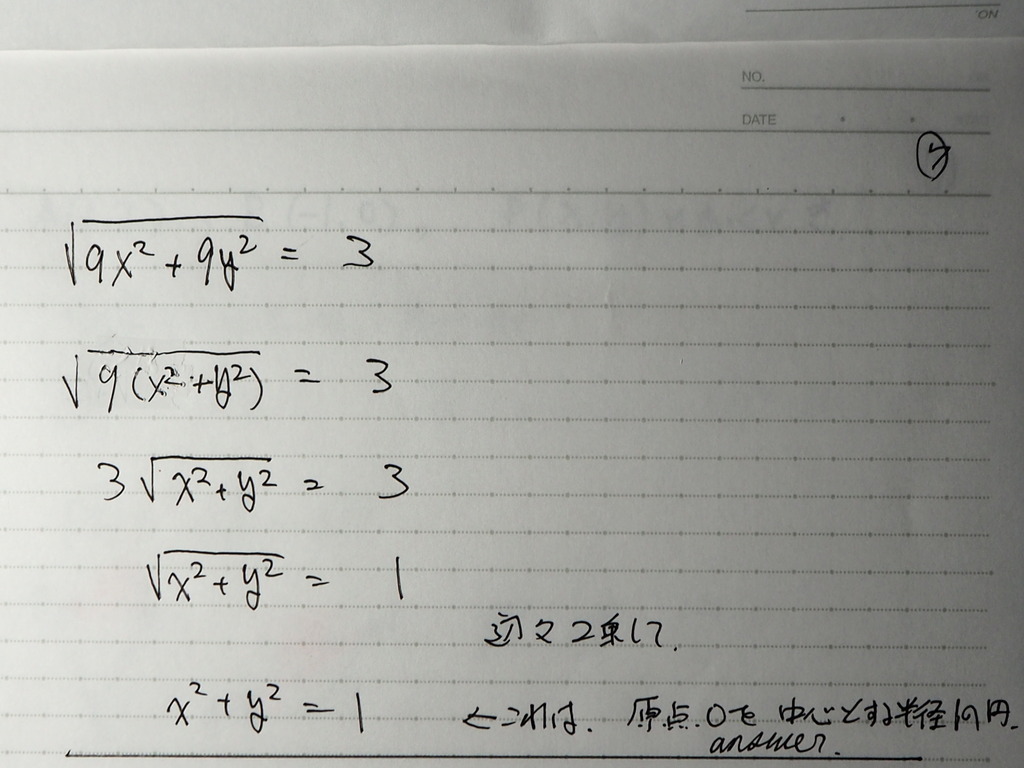 NO.
NO.
DATE
√(9x²+9y²) = 3
√(9(x²+y²)) = 3
3√(x²+y²) = 3
√(x²+y²) = 1
辺々2乗して.
x²+y² = 1 ←これは. 原点Oを中心とする半径1の円.
answer.